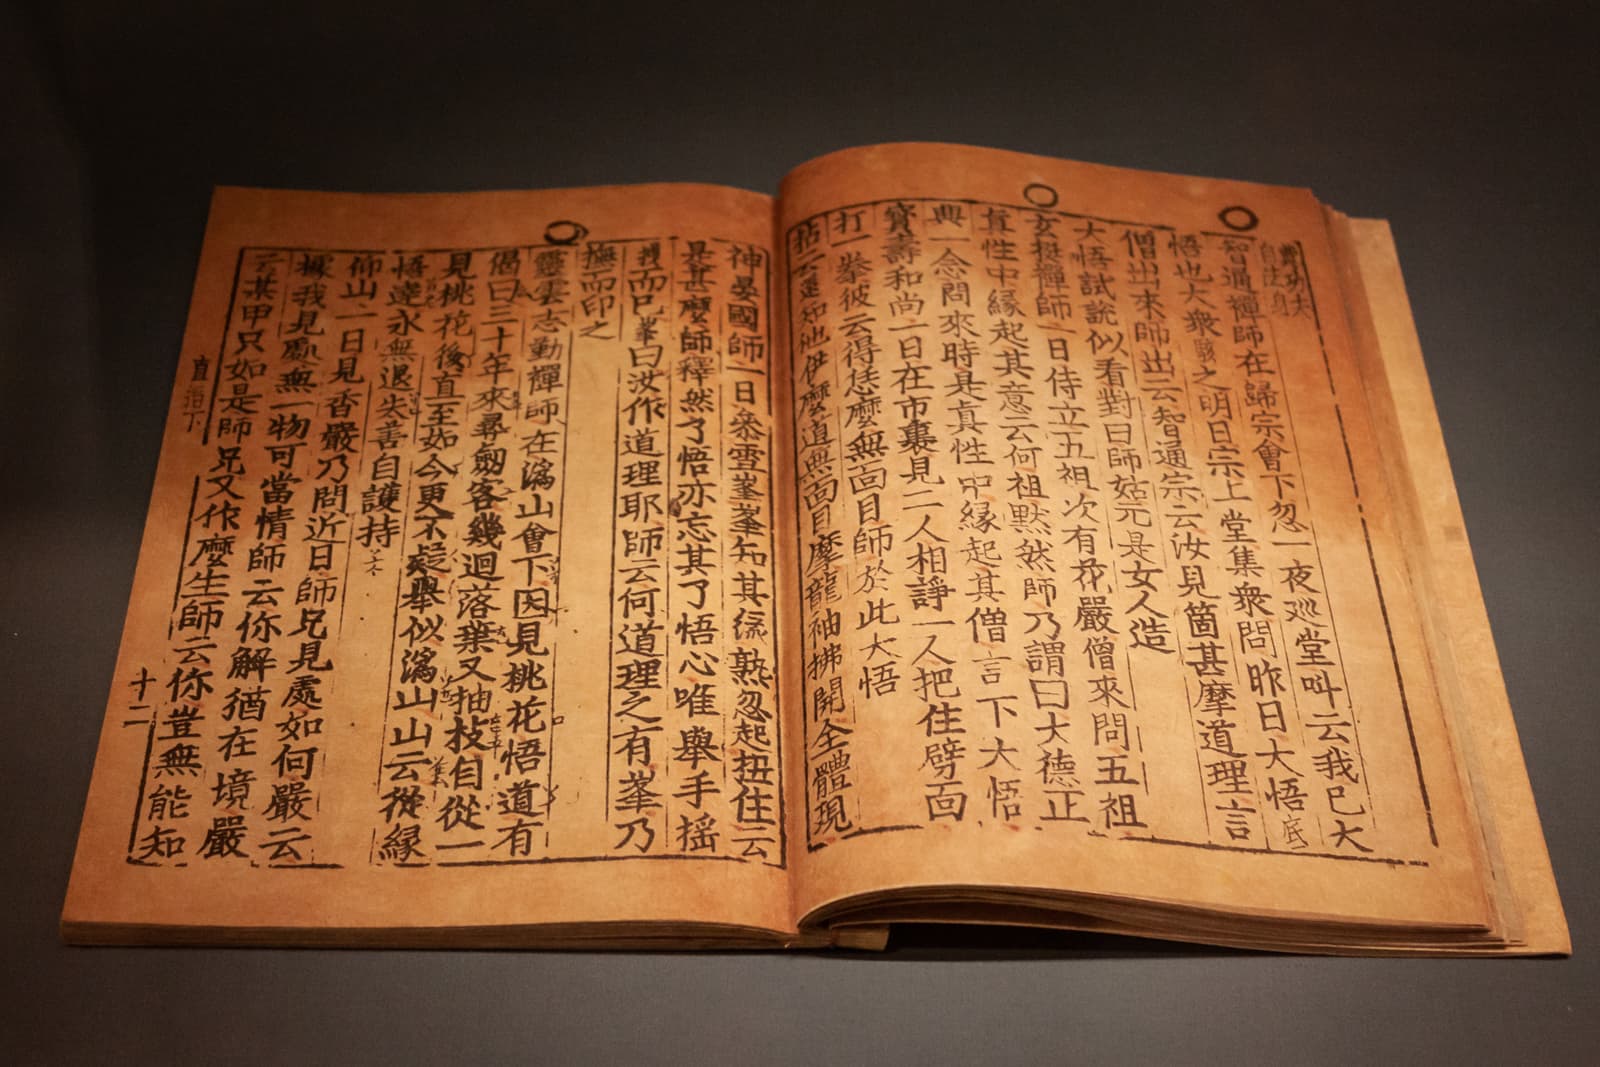 自法身
智通禪師在歸宗會下忽一夜巡堂叫云我已大
悟也大衆駭之明日宗上堂集衆問昨日大悟底
僧出來師出云智通宗云汝見箇甚摩道理言
大悟試說似看對曰師姑元是女人造
玄挺禪師一日侍立五祖次有花嚴僧來問五祖
眞性中緣起其意云何祖默然師乃謂曰大德正
興一念問來時是眞性中緣起其僧言下大悟
寶壽和尙一日在市裏見二人相諍一人把住劈面
打一拳彼云得恁麼無面目師於此大悟
拈云還知他伊麼道無面目麼龍袖拂開全體現
神晏國師一日叅雪峯峯知其緣熟忽起扭住云
是甚麼師釋然了悟亦忘其了悟心唯舉手搖
拽而已峯曰汝作道理耶師云何道理之有峯乃
撫而印之
靈雲志勤禪師在潙山會下因見桃花悟道有
偈曰三十年來尋劒客幾迴落葉又抽枝自從一
見桃花後直至如今更不疑舉似潙山山云從緣
悟達永無退失善自護持
仰山一日見香嚴乃問近日師兄見處如何嚴云
據我見處無一物可當情師云你解猶在境嚴
云某甲只如是師兄又作麼生師云你豈無能知
直指下
十二